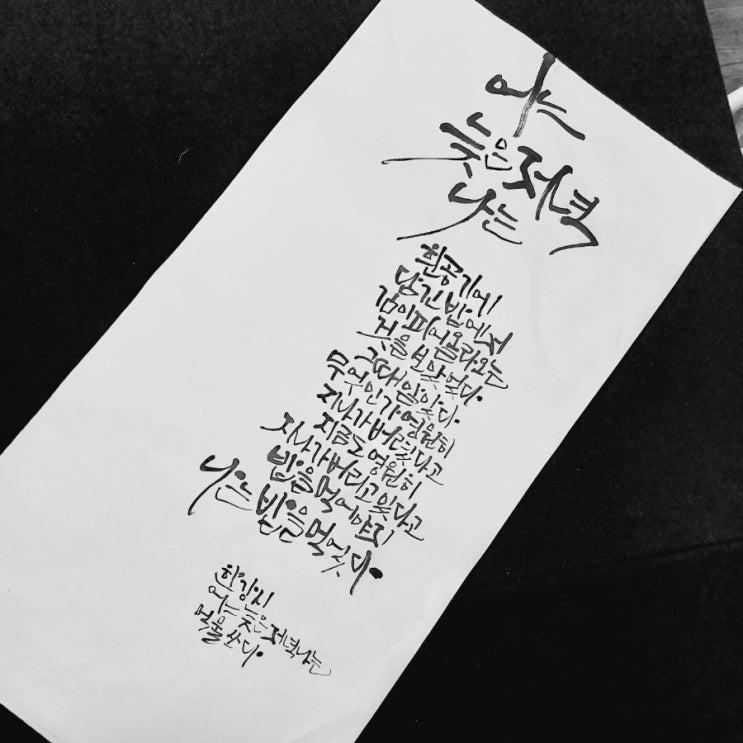 어느
늦은 저녁
나는
흰 공기에
담긴 밥에서
김이 피어 올라오는
것을 보았었다.
그때 알았다.
무엇인가 영원히
지나가버렸다고
지금도 영원히
지나가버리고 있다고
밥을 먹어야지
나는 밥을 먹었다.
한강 시
어느 늦은 저녁 나는
쓰다.